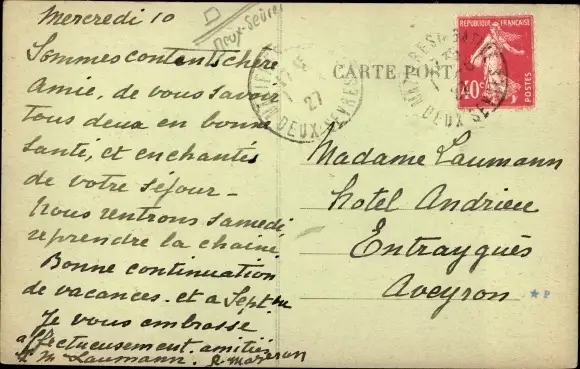 Mercredi 10
Deux-Sèvres
Sommes contents chère
Amie, de vous savoir
tous deux en bonne
santé, et enchantés
de votre séjour -
Nous rentrons samedi
reprendre la chaine.
Bonne continuation
de vacances - et a Sept
Je vous embrasse
affectueusement. amitiés
M Laumann.
CARTE POSTALE
27
DEUX-SEVRES
REPUBLIQUE FRANÇAISE
40c
POSTES
DEUX SEVRES
Madame Laumann
hotel Andrieu
Entraygues
Aveyron